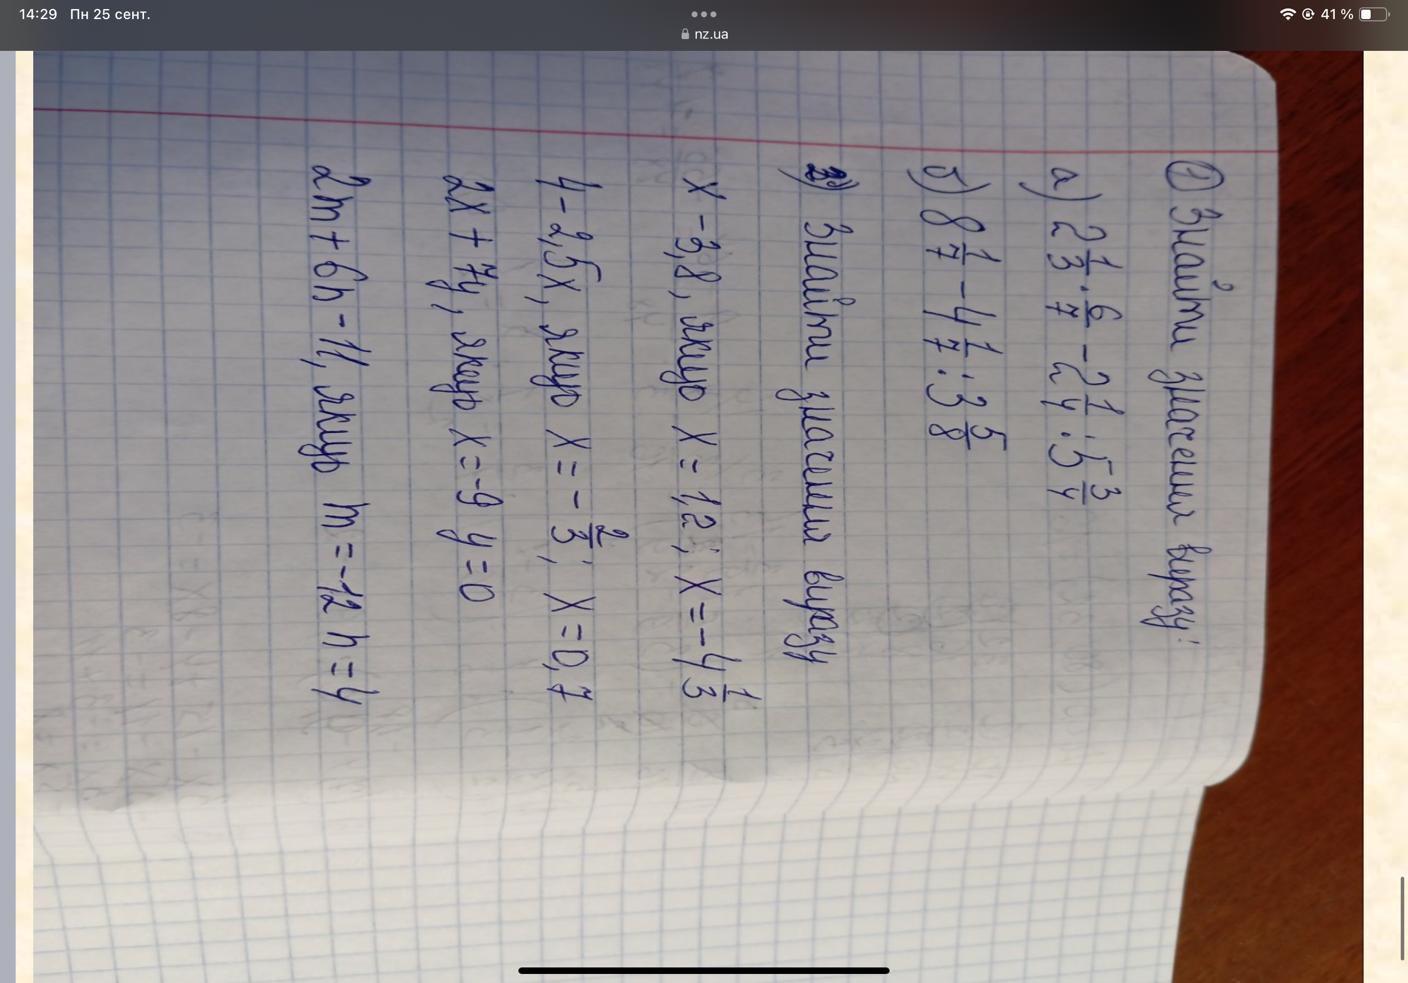 14:29 Пн 25 сент.
nz.ua
41 %
① Знайти значення виразу:
а) 2 1/3 · 6/7 - 2 1/4 : 5 3/4
б) 8 1/7 - 4 1/7 : 3 5/8
2) Знайти значення виразу
x - 3,8, якщо x = 1,2; x = -4 1/3
4 - 2,5x, якщо x = -2/3; x = 0,7
2x + 7y, якщо x = -9 y = 0
2m + 6n - 11, якщо m = -12 n = 4